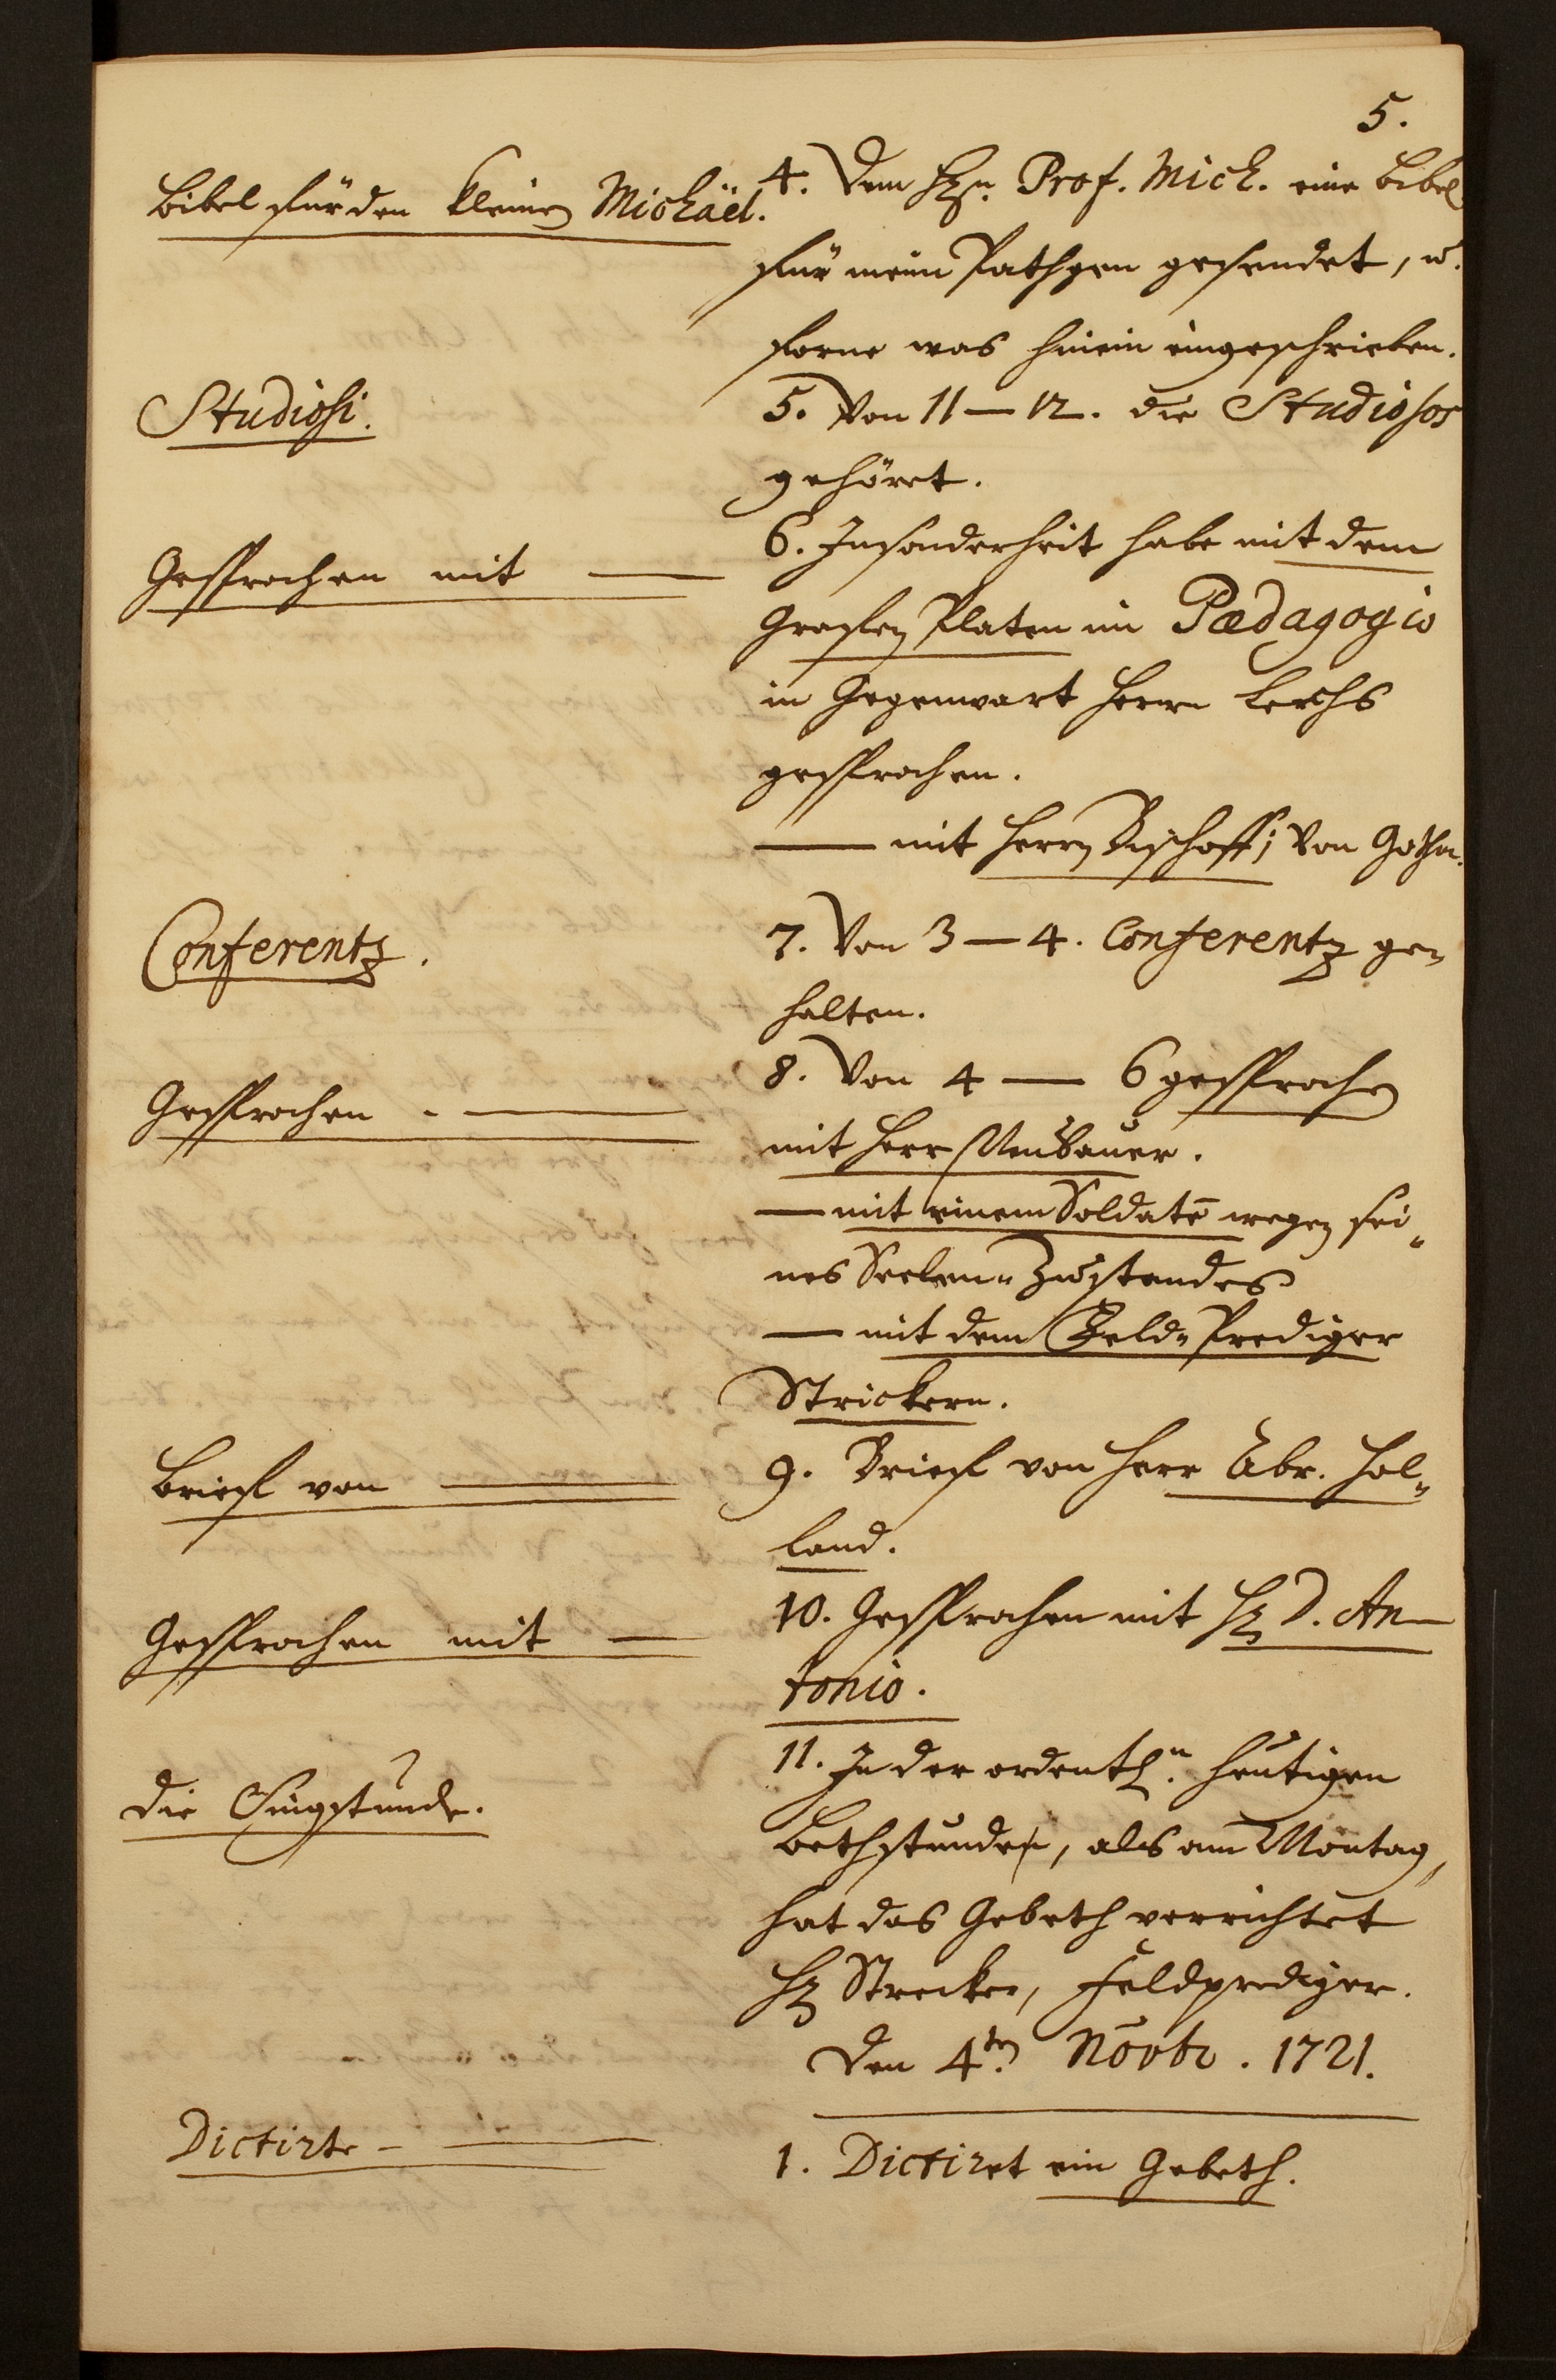 5.
Bibel für den kleinen Michäel.
4. Dem Hrn. Prof. Mich. eine Bibel
für mein Pathgen gesendet, u.
forne was hinein eingeschrieben.
Studiosi.
5. Von 11 — 12. die Studiosos
gehöret.
Gesprochen mit —
6. Insonderheit habe mit dem
Grafen Platen im Pædagogio
in Gegenwart Herrn Lerchs
gesprochen.
— mit Herrn Bischoff; von Gotha.
Conferentz.
7. Von 3 — 4. Conferentz ge-
halten.
Gesprochen - —
8. Von 4 — 6 gesprochen
mit Herr Neubauer.
— mit einem Soldatē wegen sei-
nes Seelen-Zustandes
— mit dem Feld-Prediger
Strickern.
Brief von —
9. Brief von Herr Abr. Hol-
land.
Gesprochen mit —
10. Gesprochen mit Hr D. An-
tonio.
Die Singstunde.
11. In der ordentl.n heutigen
Bethstunde, als am Montag,
hat das Gebeth verrichtet
Hr Strecker, Feldprediger.
Den 4ten Novbr. 1721.
Dictirte - —
1. Dictiret ein Gebeth.